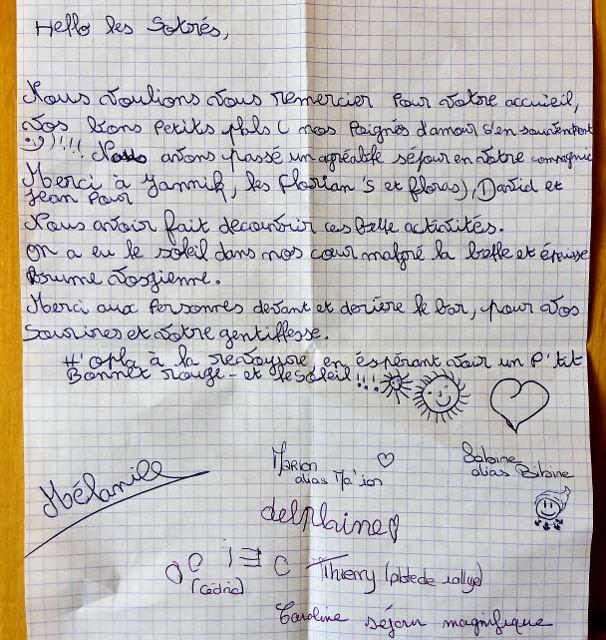 Hello les Sotrés,
Nous voulions vous remercier pour votre accueil,
vos bons petits plats ( nos poignés d'amour s'en souviennent
:)) !!! Nous avons passé un agréable séjour en votre compagnie
Merci à Yannik, les Florian's et floras), David et
Jean pour
Nous avoir fait découvrir ces belle activités.
On a eu le soleil dans nos cœur malgré la belle et épaisse
Brume vosgienne.
Merci aux personnes devant et derière le bar, pour vos
sourires et votre gentillesse.
H'opla à la revoyure en éspérant voir un p'tit
Bonnet rouge - et le soleil !!!
Marion
alias Ma'ion
Sabine
alias Bibine
Mélanie
delphine
(Cédric)
Thierry (pilote de rallye)
Caroline séjour magnifique